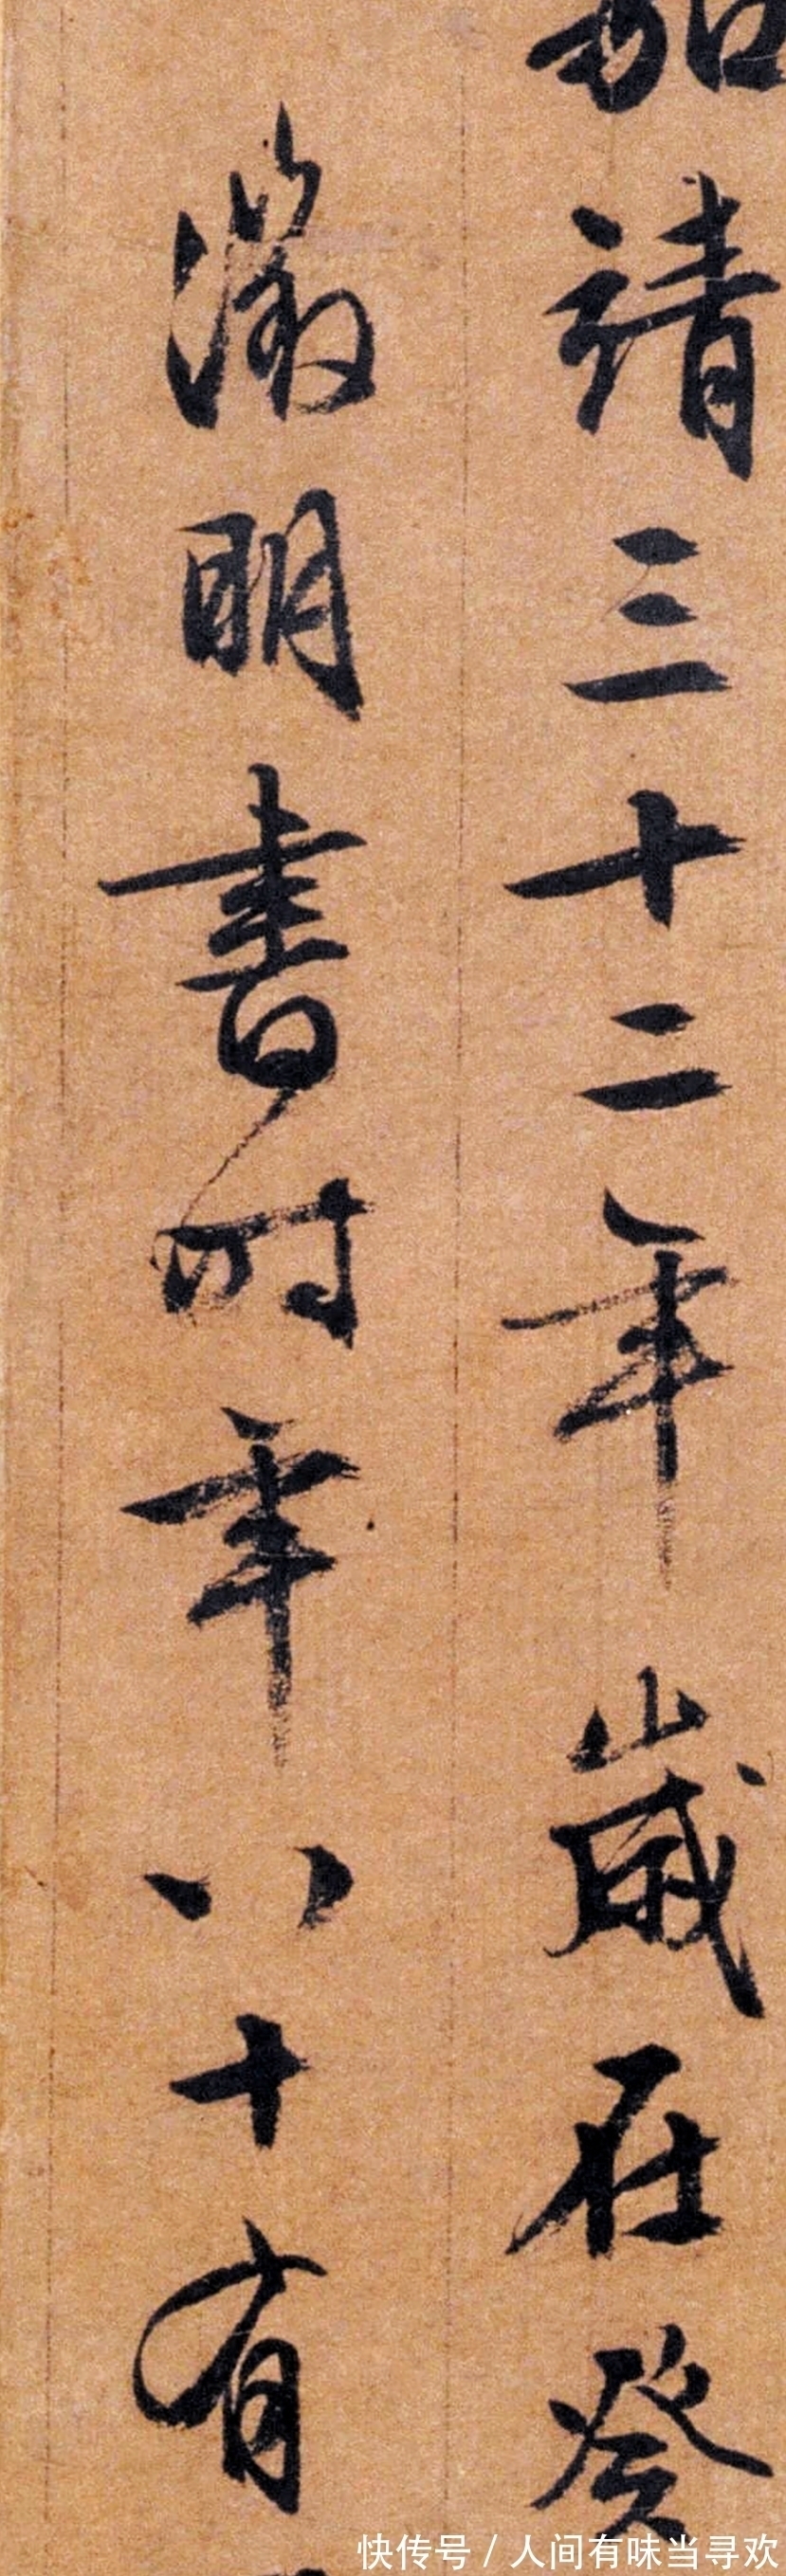 靖三十二年歲在癸
徵明書時年八十有
快传号 / 人间有味当寻欢